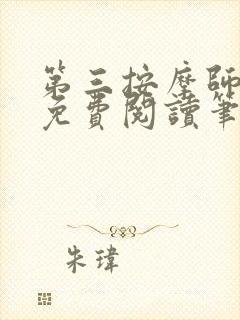 第三按摩師
免費閱讀筆
朱瑋